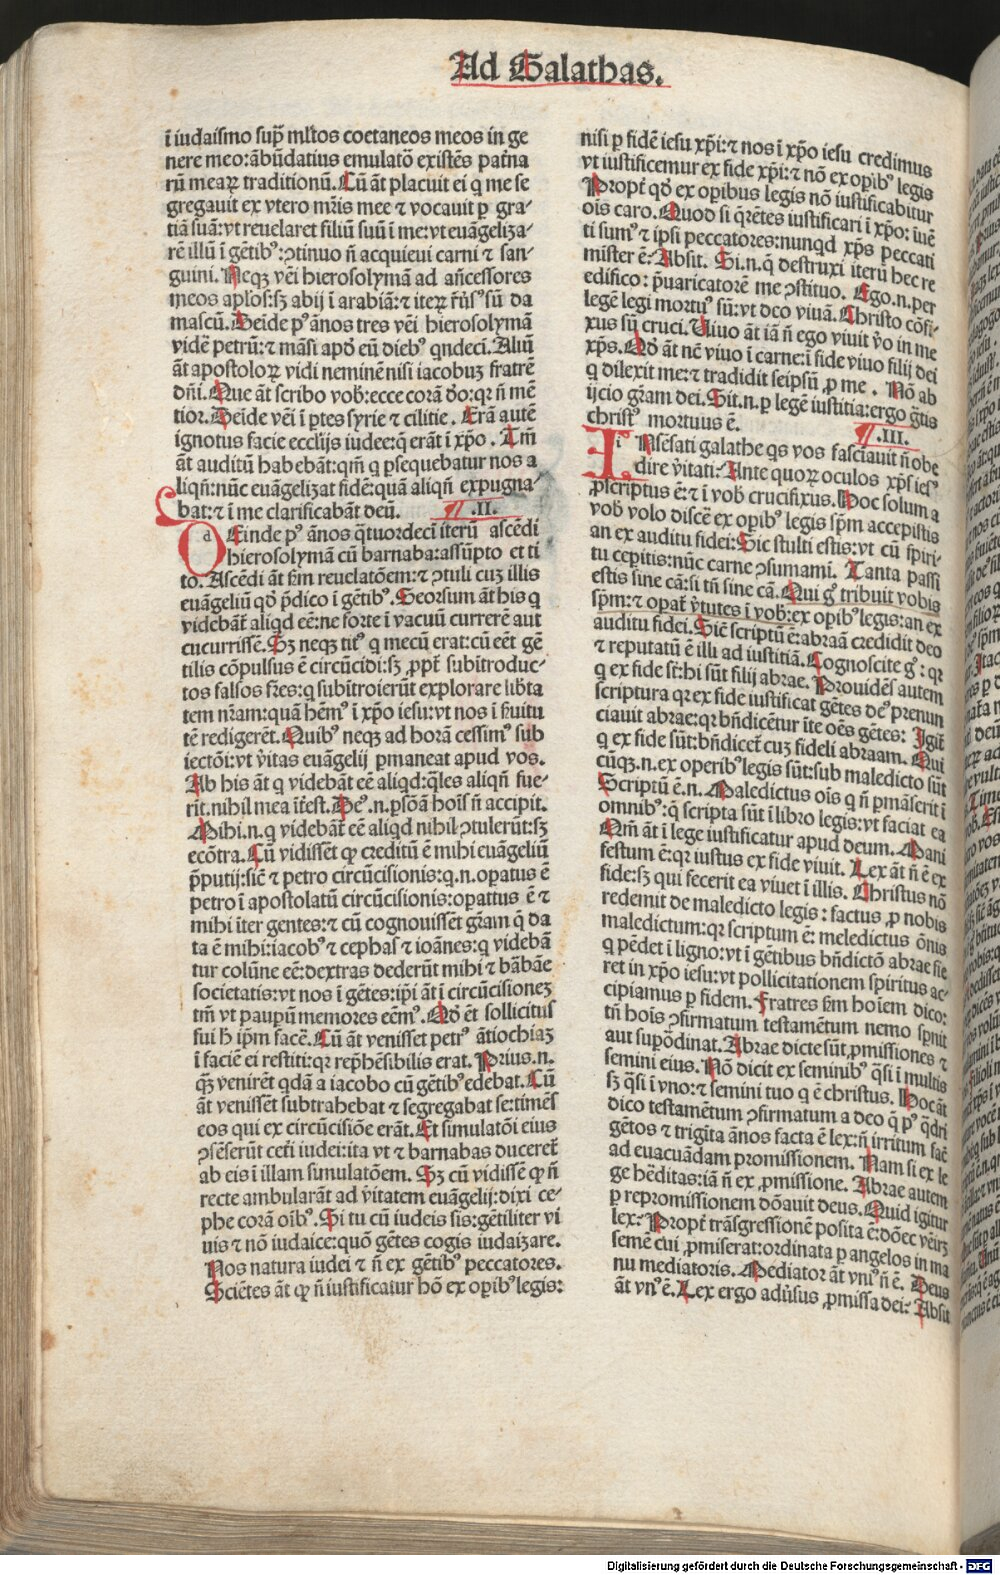 Ad Galathas.
ī iudaismo sup̄ ml̄tos coetaneos meos in ge
nere meo:ābūdatius emulatō existēs pat̄na
rū mearꝝ traditionū. Cū āt placuit ei q̄ me se
gregauit ex vtero mr̄is mee ⁊ vocauit ꝑ gra⸗
tiā suā:vt reuelaret filiū suū ī me:vt euāgeliza⸗
rē illū ī gētibꝰ:ꝯtinuo n̄ acquieui carni ⁊ san⸗
guini. Neqꝫ vēi hierosolymā ad an̄cessores
meos apl̄os:sꝫ abij ī arabiā:⁊ iteꝝ r̄usꝰ sū da
mascū. Deīde pꝰ ānos tres vēi hierosolymā
vidē petrū:⁊ māsi apd̄ eū diebꝰ qndeci. Aliū
āt apostoloꝝ vidi neminē nisi iacobuꝫ fratrē
dn̄i. Que āt scribo vob̄:ecce corā do:qꝛ n̄ mē
tior. Deīde vēi ī ꝑtes syrie ⁊ cilitie. Erā autē
ignotus facie eccl̄ijs iudee:q̄ erāt ī xp̄o. Tm̄
āt auditū habebāt:qm̄ q̄ ꝑsequebatur nos a
liqn̄:nūc euāgelizat fidē:quā aliqn̄ expugna⸗
bat:⁊ ī me clarificabāt deū. ¶ .II.
DEinde pꝰ ānos q̄tuordecī iterū ascēdi
hierosolymā cū barnaba:assūpto et ti
to. Ascēdi āt fm̄ reuelatōem:⁊ ꝯtuli cuꝫ illis
euāgeliū qd̄ p̄dico ī gētibꝰ. Seorsum āt his q
videbāt̄ aliqd eē:ne forte ī vacuū currerē aut
cucurrissē. Sꝫ neqꝫ titꝰ q mecū erat:cū eēt gē
tilis cōpulsus ē circūcidi:sꝫ ꝓpt̄ subītroduc⸗
tos falsos fr̄es:q subītroierūt explorare lib̄ta
tem nr̄am:quā hēmꝰ ī xp̄o iesu:vt nos ī s̄uitu
tē redigerēt. Quibꝰ neqꝫ ad horā cessimꝰ sub
iectōi:vt v̄itas euāgelij ꝑmaneat apud vos.
Ab his āt q videbāt eē aliqd:q̄les aliqn̄ fue⸗
rīt.nihil mea īt̄est. Deꝰ .n.ꝑsōā hoīs n̄ accipit.
Mihi.n.q videbāt̄ eē aliqd nihil ꝯtulerūt:sꝫ
ecōtra. Cū vidissēt qꝙ creditū ē mihi euāgeliū
p̄putij:sic̄ ⁊ petro circūcisionis:q.n.oꝑatus ē
petro ī apostolatū circūcisionis:oꝑattus ē ⁊
mihi īter gentes:⁊ cū cognouissēt gr̄am q̄ da
ta ē mihi:iacobꝰ ⁊ cephas ⁊ ioānes:q videbā
tur colūne eē:dextras dederūt mihi ⁊ bābāe
societatis:vt nos ī gētes:ip̄i āt ī circūcisioneꝫ
tm̄ vt pauꝑū memores eēmꝰ. Qd̄ et sollicitus
fui h̄ ip̄m facē. Cū āt venisset petrꝰ ātiochiaꝫ
ī faciē ei restiti:qꝛ rep̄hēsibilis erat. Prius.n.
qꝫ venirēt qdā a iacobo cū gētibꝰ edebat. Cū
āt venissēt subtrahebat ⁊ segregabat se:timēs
eos qui ex circūcisiōe erāt. Et simulatōi eius
ꝯsēserūt cet̄i iudei:ita vt ⁊ barnabas duceret̄
ab eis ī illam simulatōem. Sꝫ cū vidissē qꝙ n̄
recte ambularāt ad v̄itatem euāgelij:dixi ce⸗
phe corā oībꝰ. Si tu cū iudeis sis:gētiliter vi
uis ⁊ nō iudaice:quō gētes cogis iudaizare.
Nos natura iudei ⁊ n̄ ex gētibꝰ peccatores.
Sciētes āt qꝙ n̄ iustificatur hō ex oꝑibꝰ legis:
nisi ꝑ fidē iesu xp̄i:⁊ nos ī xp̄o iesu credimus
vt iustificemur ex fide xp̄i:⁊ nō ex oꝑibꝰ legis
Propt̄ qd̄ ex oꝑibus legis nō iustificabitur
oīs caro. Quod si q̄rētes iustificari ī xp̄o: iuē
ti sumꝰ ⁊ ipsi peccatores:nunqd xp̄s peccati
mīster ē: Absit. Si.n.q̄ destruxi iterū hec re
edifico: p̄uaricatorē me ꝯstituo. Ego.n.per
legē legi mortuꝰ sū:vt deo viuā. Christo cōfi⸗
xus sū cruci. Uiuo āt iā n̄ ego viuit v̄o in me
xp̄s. Qd̄ āt nc̄ viuo ī carne:ī fide viuo filij dei
q dilexit me:⁊ tradidit seipsū ꝓ me. Nō ab
ijcio gr̄am dei. Sit.n.ꝑ legē iustitia:ergo gr̄tis
christꝰ mortuus ē. ¶ .III.
INsēsati galathe qs vos fasciauit n̄ obe
dire v̄itati: Ante quoꝝ oculos xp̄s iesꝰ
ꝓscriptus ē:⁊ ī vob̄ crucifixus. Hoc solum a
vob̄ volo discē ex oꝑibꝰ legis sp̄m accepistis
an ex auditu fidei: Sic stulti estis:vt cū spiri⸗
tu ceꝑitis:nūc carne ꝯsumami. Tanta passi
estis sine cā:si tn̄ sine cā. Qui gꝰ tribuit vobis
sp̄m:⁊ opat̄ v̄tutes ī vob̄:ex oꝑibꝰ legis:an ex
auditu fidei. Sic̄ scriptū ē:abraā credidit deo
⁊ reputatū ē illi ad iustitiā. Cognoscite gꝰ: qꝛ
q ex fide st̄:hi sūt filij abrae. Prouidēs autem
scriptura qꝛ ex fide iustificat gētes deꝰ prenun
ciauit abrae:qꝛ bn̄dicētur īte oēs gētes: Igit̄
q ex fide sūt:bn̄dicet̄ cuꝫ fideli abraam. Qui
cūqꝫ.n.ex operibꝰ legis sūt:sub maledicto sūt
Scriptū ē.n. Maledictus oīs q n̄ ꝑmāserit ī
omnibꝰ:q̄ scripta sūt ī libro legis:vt faciat ea
Qm̄ āt ī lege iustificatur apud deum. Mani
festum ē:qꝛ iustus ex fide viuit. Lex āt n̄ ē ex
fide:sꝫ qui fecerit ea viuet ī illis. Christus nō
redemit de maledicto legis: factus ꝓ nobis
maledictum:qꝛ scriptum ē: meledictus ōnis
q pēdet ī ligno:vt ī gētibus bn̄dictō abrae fie
ret in xp̄o iesu:vt pollicitationem spiritus ac⸗
cipiamus ꝑ fidem. Fratres fm̄ hoīem dico:
tn̄ hoīs ꝯfirmatum testamētum nemo sp̄nit
aut supōdinat. Abrae dicte sūt ꝓmissiones ⁊
semini eius. Nō dicit ex seminibꝰ q̄si ī multis
sꝫ q̄si ī vno:⁊ semini tuo q ē christus. Hoc āt
dico testamētum ꝯfirmatum a deo q̄ pꝰ q̄dri
gētos ⁊ trigīta ānos facta ē lex:n̄ irritum fac̄
ad euacuādam promissionem. Nam si ex le
ge hēditas:iā n̄ ex ꝓmissione. Abrae autem
ꝑ repromissionem dōauit deus. Quid igitur
lex: Propt̄ trāsgressionē posita ē:dōec vēirꝫ
semē cui ꝓmiserat:ordinata ꝑ angelos in ma
nu mediatoris. Mediator āt vniꝰ n̄ ē. Deus
āt vnꝰ ē. Lex ergo adūsus ꝓmissa dei: Absit
Digitalisierung gefördert durch die Deutsche Forschungsgemeinschaft - DFG